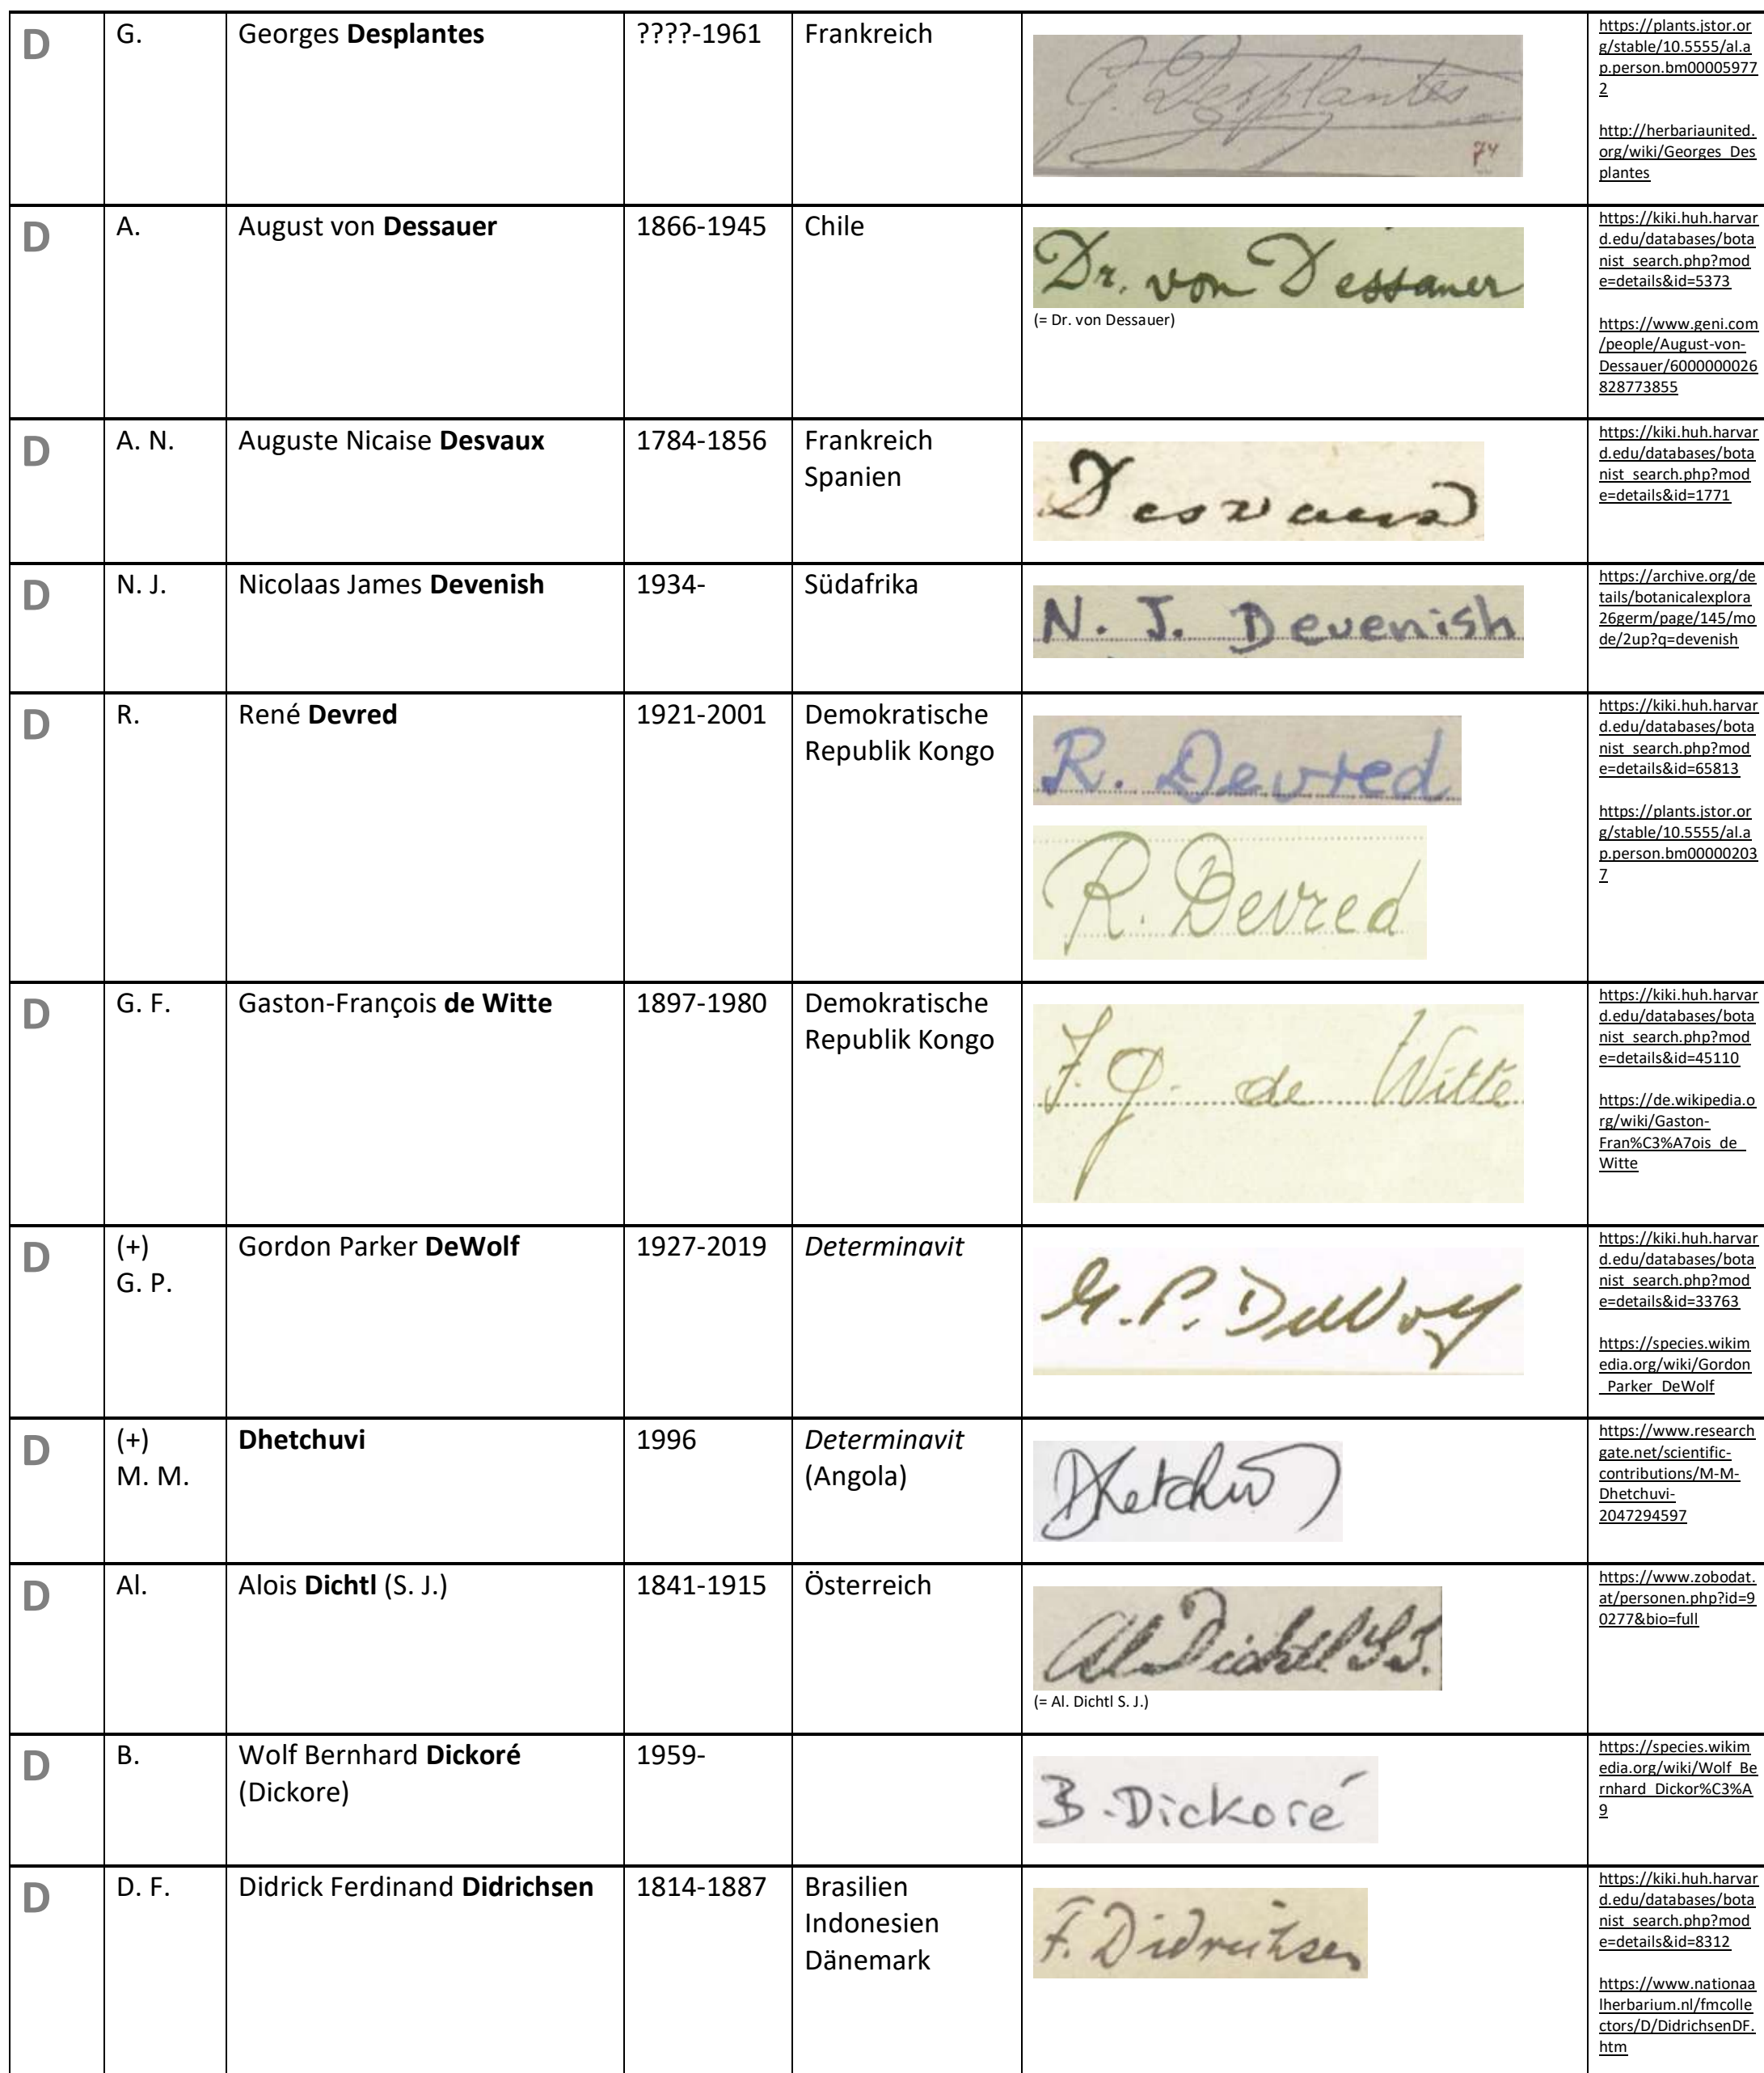 D
G.
Georges Desplantes
????-1961
Frankreich
G. Desplantes
74
https://plants.jstor.or
g/stable/10.5555/al.a
p.person.bm00005977
2
http://herbariaunited.
org/wiki/Georges_Des
plantes
D
A.
August von Dessauer
1866-1945
Chile
Dr. von Dessauer
(= Dr. von Dessauer)
https://kiki.huh.harvar
d.edu/databases/bota
nist_search.php?mod
e=details&id=5373
https://www.geni.com
/people/August-von-
Dessauer/6000000026
828773855
D
A. N.
Auguste Nicaise Desvaux
1784-1856
Frankreich
Spanien
Desvaux
https://kiki.huh.harvar
d.edu/databases/bota
nist_search.php?mod
e=details&id=1771
D
N. J.
Nicolaas James Devenish
1934-
Südafrika
N. J. Devenish
https://archive.org/de
tails/botanicalexplora
26germ/page/145/mo
de/2up?q=devenish
D
R.
René Devred
1921-2001
Demokratische
Republik Kongo
R. Devred
R. Devred
https://kiki.huh.harvar
d.edu/databases/bota
nist_search.php?mod
e=details&id=65813
https://plants.jstor.or
g/stable/10.5555/al.a
p.person.bm00000203
7
D
G. F.
Gaston-François de Witte
1897-1980
Demokratische
Republik Kongo
F. G. de Witte
https://kiki.huh.harvar
d.edu/databases/bota
nist_search.php?mod
e=details&id=45110
https://de.wikipedia.o
rg/wiki/Gaston-
Fran%C3%A7ois_de_
Witte
D
(+)
G. P.
Gordon Parker DeWolf
1927-2019
Determinavit
G. P. DeWolf
https://kiki.huh.harvar
d.edu/databases/bota
nist_search.php?mod
e=details&id=33763
https://species.wikim
edia.org/wiki/Gordon
_Parker_DeWolf
D
(+)
M. M.
Dhetchuvi
1996
Determinavit
(Angola)
Dhetchuvi
https://www.research
gate.net/scientific-
contributions/M-M-
Dhetchuvi-
2047294597
D
Al.
Alois Dichtl (S. J.)
1841-1915
Österreich
Al Dichtl S J.
(= Al. Dichtl S. J.)
https://www.zobodat.
at/personen.php?id=9
0277&bio=full
D
B.
Wolf Bernhard Dickoré
(Dickore)
1959-
B. Dickoré
https://species.wikim
edia.org/wiki/Wolf_Be
rnhard_Dickor%C3%A
9
D
D. F.
Didrick Ferdinand Didrichsen
1814-1887
Brasilien
Indonesien
Dänemark
F. Didrichsen
https://kiki.huh.harvar
d.edu/databases/bota
nist_search.php?mod
e=details&id=8312
https://www.nationaa
lherbarium.nl/fmcolle
ctors/D/DidrichsenDF.
htm